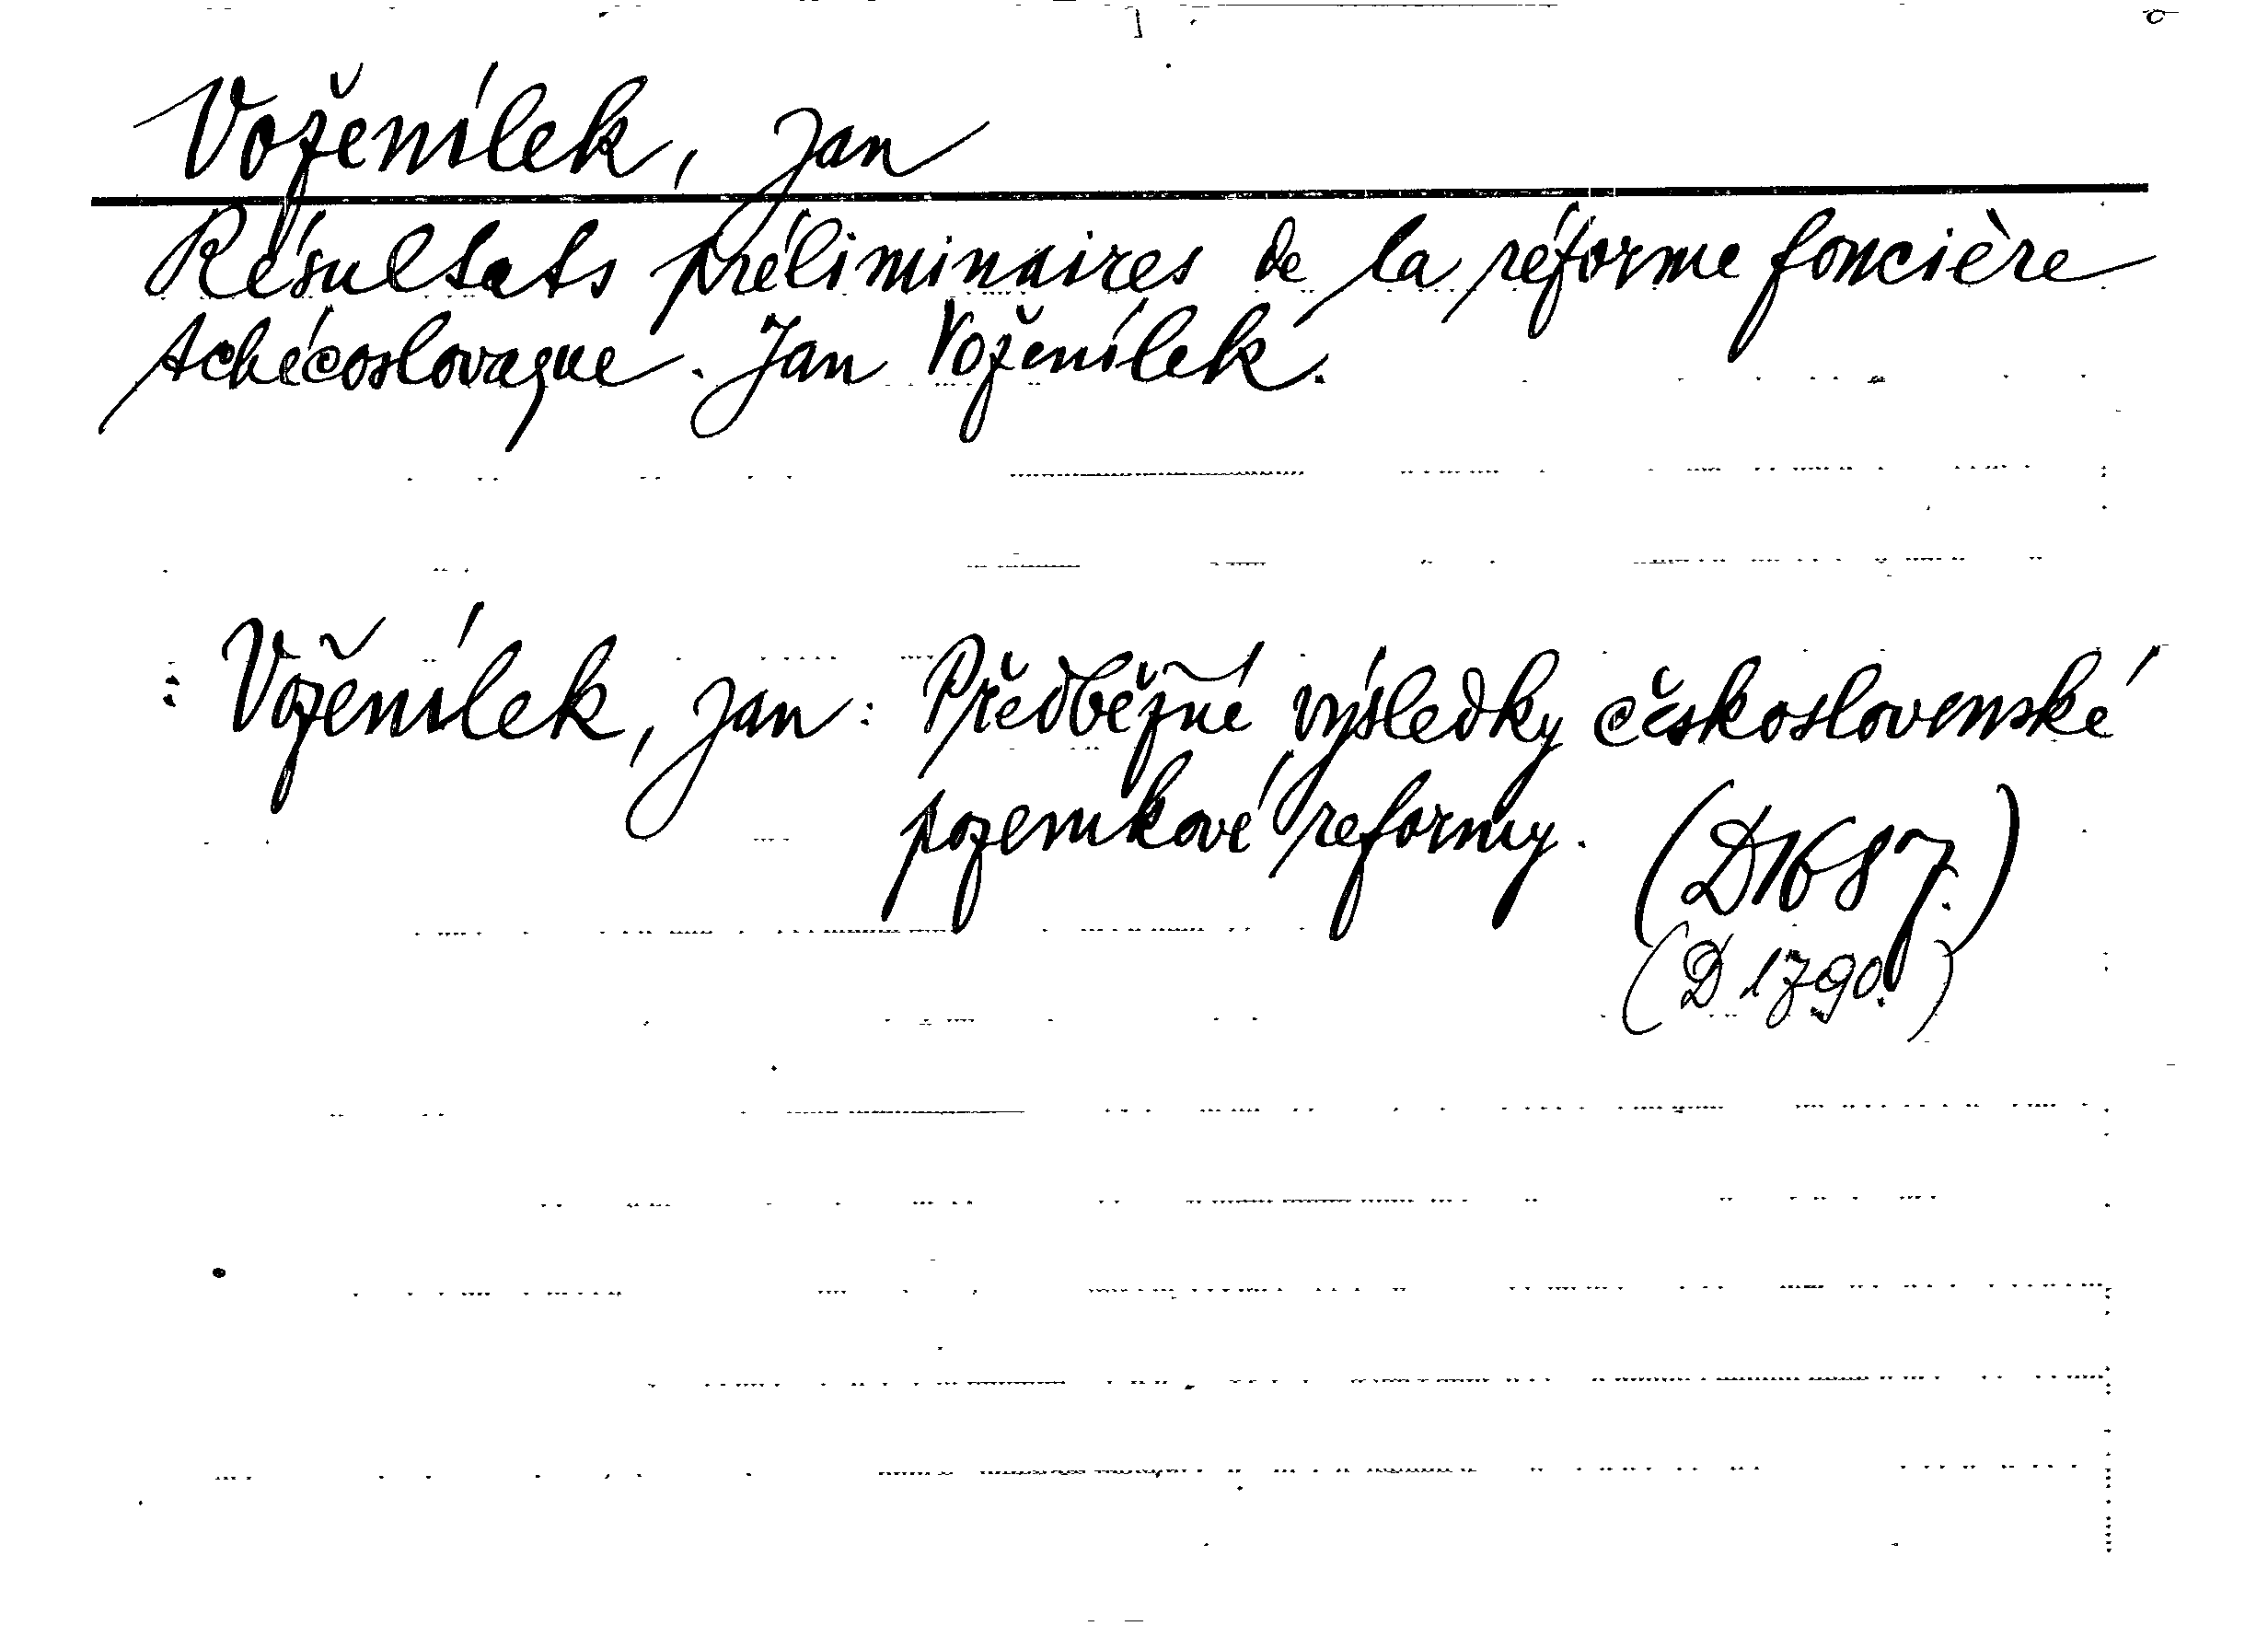 Voženílek, Jan
Résultats préliminaires de la réforme foncière
tchécoslovaque. Jan Voženílek.
: Voženílek, Jan: Předběžné výsledky československé
pozemkové reformy. (D1687.)
(D 1790.)